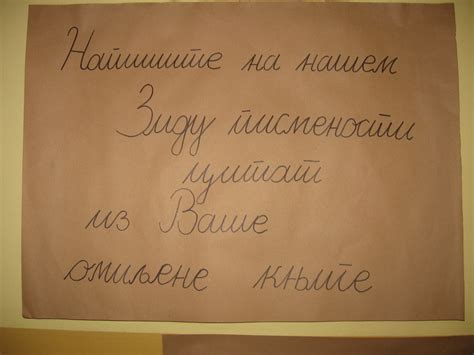 Напишите на нашем
Зиду писмености
цитат
из Ваше
омиљене књиге